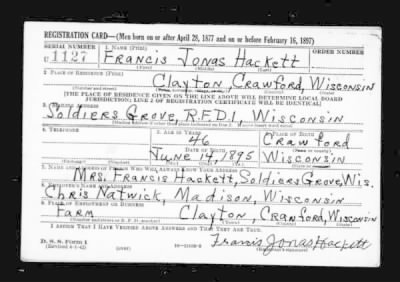 REGISTRATION CARD—(Men born on or after April 28, 1877 and on or before February 16, 1897)
SERIAL NUMBER 1. NAME (Print) ORDER NUMBER
U1127 Francis Jonas Hackett
(First) (Middle) (Last)
2. PLACE OF RESIDENCE (Print)
Clayton, Crawford, Wisconsin
[THE PLACE OF RESIDENCE GIVEN ON THE LINE ABOVE WILL DETERMINE LOCAL BOARD
JURISDICTION; LINE 2 OF REGISTRATION CERTIFICATE WILL BE IDENTICAL]
3. MAILING ADDRESS
Soldiers Grove, R.F.D.1, Wisconsin
4. TELEPHONE 5. AGE IN YEARS 6. PLACE OF BIRTH
46 Crawford
DATE OF BIRTH (Town or county)
June 14, 1895 Wisconsin
(Exchange) (Number) (Mo.) (Day) (Yr.) (State or country)
7. NAME AND ADDRESS OF PERSON WHO WILL ALWAYS KNOW YOUR ADDRESS
Mrs. Francis Hackett, Soldiers Grove, Wis.
8. EMPLOYER'S NAME AND ADDRESS
Chris Natwick, Madison, Wisconsin
9. PLACE OF EMPLOYMENT OR BUSINESS
Farm Clayton, Crawford, Wisconsin
I AFFIRM THAT I HAVE VERIFIED ABOVE ANSWERS AND THAT THEY ARE TRUE.
D. S. S. Form 1
(Revised 4-1-42) (over)
Francis Jonas Hackett
(Registrant's signature)